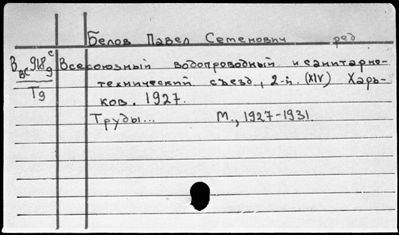 Белов Павел Семенович ред
В вс 918 с 9 Всесоюзный водопроводный и санитарно-
Т9 технический съезд, 2-й. (XIV) Харь-
ков. 1927.
Труды... М., 1927-1931.